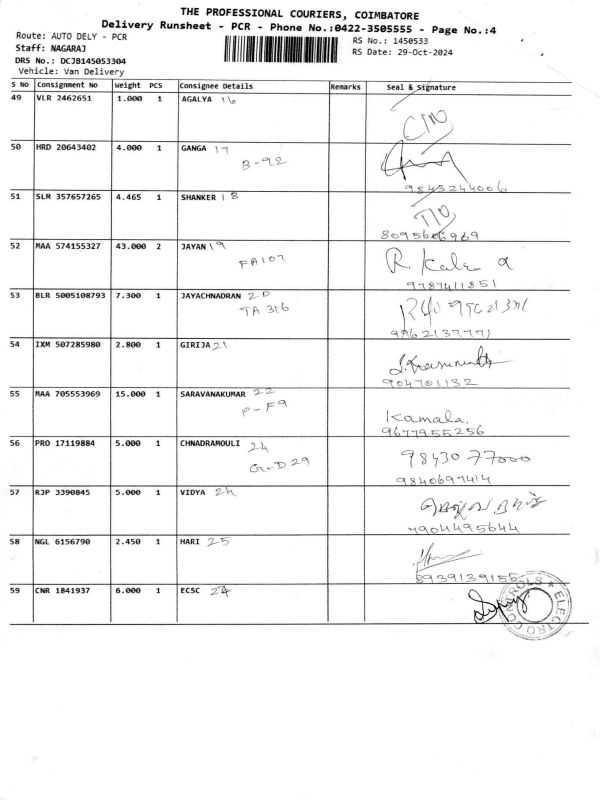 THE PROFESSIONAL COURIERS, COIMBATORE
Delivery Runsheet - PCR - Phone No.:0422-3505555 - Page No.:4
Route: AUTO DELY - PCR
RS No.: 1450533
Staff: NAGARAJ
RS Date: 29-Oct-2024
DRS No.: DCJB145053304
Vehicle: Van Delivery
S No Consignment No Weight PCS Consignee Details Remarks Seal & Signature
49 VLR 2462651 1.000 1 AGALYA 16
50 HRD 20643402 4.000 1 GANGA 17
B-92
9843244006
51 SLM 357657265 4.465 1 SHANKER 18
8095606969
52 MAA 574155327 43.000 2 JAYAN 19
FA107 R Kala
9787411851
53 BLR 5005108793 7.300 1 JAYACHNADRAN 20
TA 316
9962137771
54 IXM 507285980 2.800 1 GIRIJA 21
904701132
55 MAA 705553969 15.000 1 SARAVANAKUMAR 22
P-F9 Kamala.
9677955256
56 PRO 17119884 5.000 1 CHNADRAMOULI 24
G-D29 98430 77000
9840697414
57 RJP 3390845 5.000 1 VIDYA 24
7904495644
58 NGL 6156790 2.450 1 HARI 25
8939139156
59 CNR 1841937 6.000 1 ECSC 27
ELECTRO CONTROLS